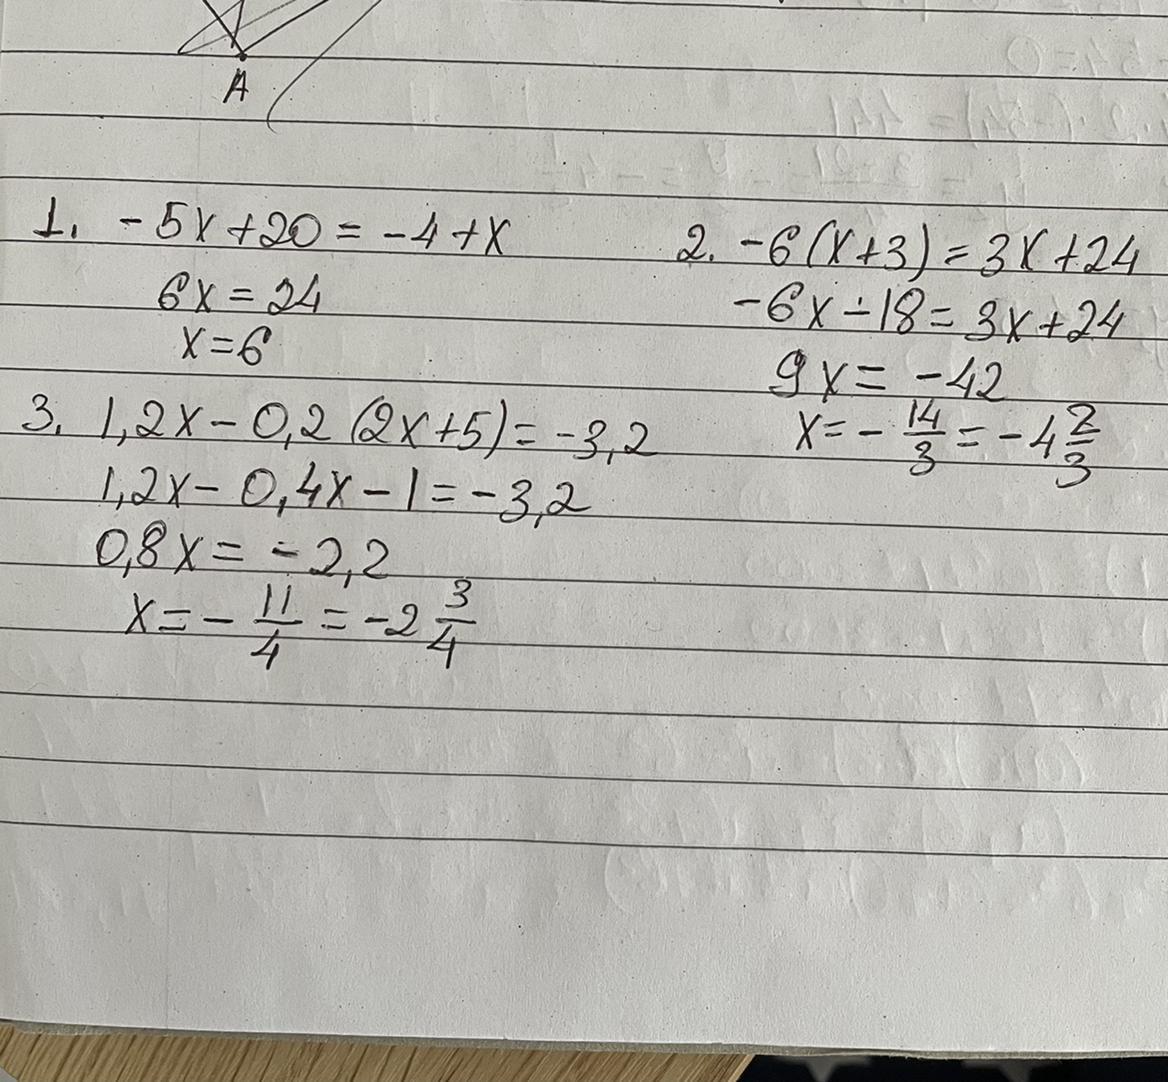 A
1. -5x+20 = -4+x
6x = 24
x=6
2. -6(x+3)=3x+24
-6x-18=3x+24
9x = -42
x= - 14/3 = -4 2/3
3. 1,2x - 0,2 (2x+5) = -3,2
1,2x - 0,4x - 1 = -3,2
0,8x = -2,2
x = - 11/4 = -2 3/4